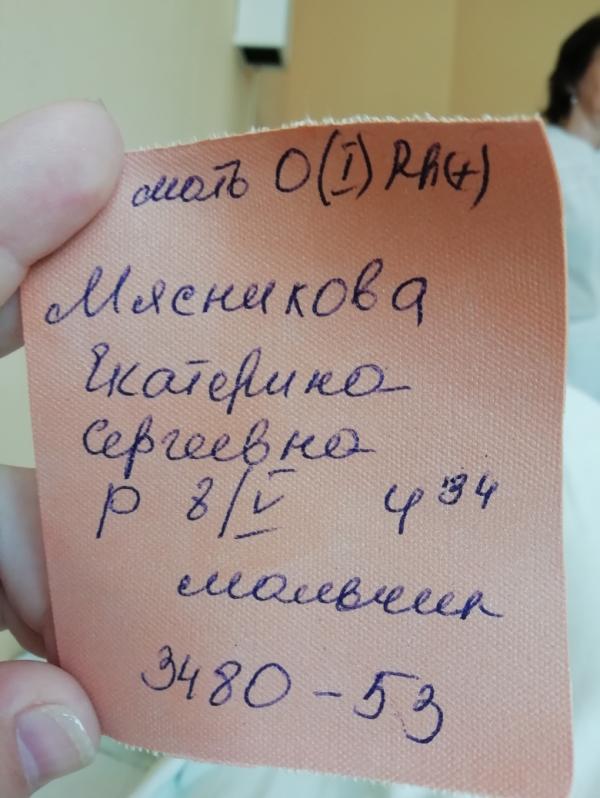 мать O(I) Rh(+)
Мясникова
Екатерина
Сергеевна
р 8/V 4 34
мальчик
3480 - 53